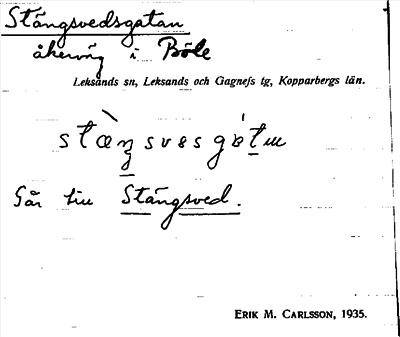 Stängsvedsgatan
åkerväg i Böle
Leksands sn, Leksands och Gagnefs tg, Kopparbergs län.
Går till Stängsved.
ERIK M. CARLSSON, 1935.